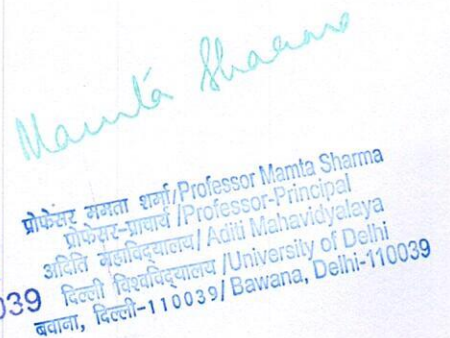 Mamta Sharma
प्रोफेसर ममता शर्मा/Professor Mamta Sharma
प्रोफेसर-प्राचार्य /Professor-Principal
अदिति महाविद्यालय/ Aditi Mahavidyalaya
दिल्ली विश्वविद्यालय /University of Delhi
बवाना, दिल्ली-110039/ Bawana, Delhi-110039
039